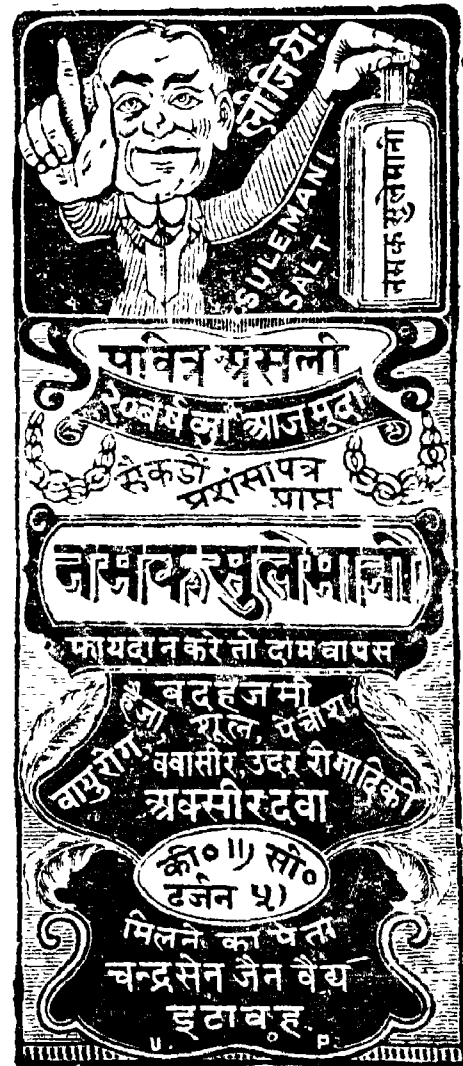 लीजिये!
SULEMANI
SALT
नमक सुलेमानी
पवित्र असली
२० वर्ष का आजमूदा
सैकडों
प्रशंसापत्र
प्राप्त
नमक सुलेमानी
फायदा न करे तो दाम वापस
बदहजमी
हैजा, शूल, पेचीश,
वायुरोग, बबासीर, उदर रोगादिकी
अक्सीर दवा
की० ॥) सी०
दर्जन ५)
मिलने का पता
चन्द्रसेन जैन वैद्य
इटावह
U. P.